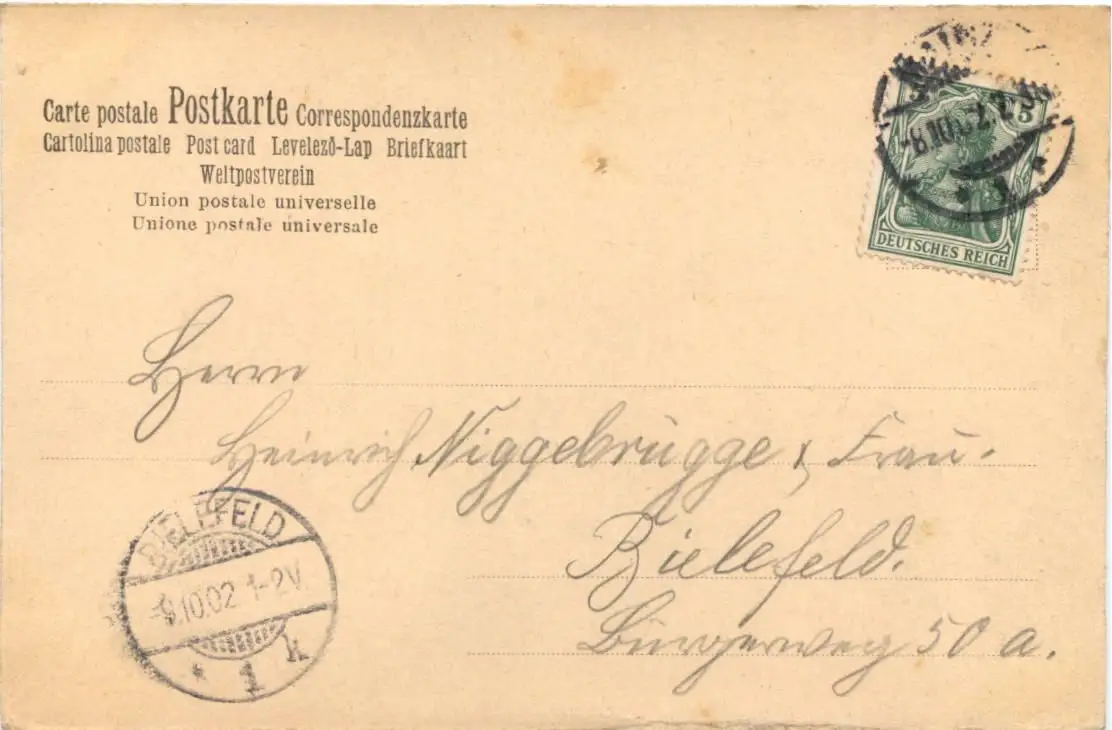 Carte postale Postkarte Correspondenzkarte
Cartolina postale Post card Levelező-Lap Briefkaart
Weltpostverein
Union postale universelle
Unione postale universale
5
DEUTSCHES REICH
-8.10.02.
* 1 *
Herrn
Heinrich Niggebrügge & Frau.
Bielefeld.
Bürgerweg 50 a.
BIELEFELD
-9.10.02.1-2V
* 1 k